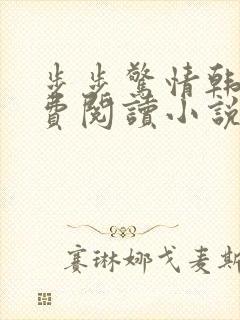 步步驚情韓
費閱讀小說
賽琳娜戈麥斯